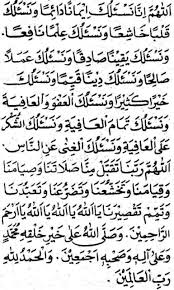 اَللّٰهُمَّ اِنَّا نَسْئَلُكَ اِيْمَانًا دَائِمًا وَنَسْئَلُكَ
قَلْبًا خَاشِعًا وَنَسْئَلُكَ عِلْمًا نَافِعًا.
وَنَسْئَلُكَ يَقِيْنًا صَادِقًا وَنَسْئَلُكَ عَمَلًا
صَالِحًا وَنَسْئَلُكَ دِيْنًا قَيِّمًا وَنَسْئَلُكَ
خَيْرًا كَثِيْرًا وَنَسْئَلُكَ الْعَفْوَ وَالْعَافِيَةَ
وَنَسْئَلُكَ تَمَامَ الْعَافِيَةِ وَنَسْئَلُكَ الشُّكْرَ
عَلَى الْعَافِيَةِ وَنَسْئَلُكَ الْغِنَى عَنِ النَّاسِ.
اَللّٰهُمَّ رَبَّنَا تَقَبَّلْ مِنَّا صَلَاتَنَا وَصِيَامَنَا
وَقِيَامَنَا وَتَخَشُّعَنَا وَتَضَرُّعَنَا وَتَعَبُّدَنَا
وَتَمِّمْ تَقْصِيْرَنَا يَا اَللهُ يَا اَللهُ يَا اَللهُ يَا اَرْحَمَ
الرَّاحِمِيْنَ. وَصَلَّى اللهُ عَلَى خَيْرِ خَلْقِهِ مُحَمَّدٍ
وَعَلَى اٰلِهِ وَصَحْبِهِ اَجْمَعِيْنَ. وَالْحَمْدُ لِلّٰهِ
رَبِّ الْعَالَمِيْنَ.